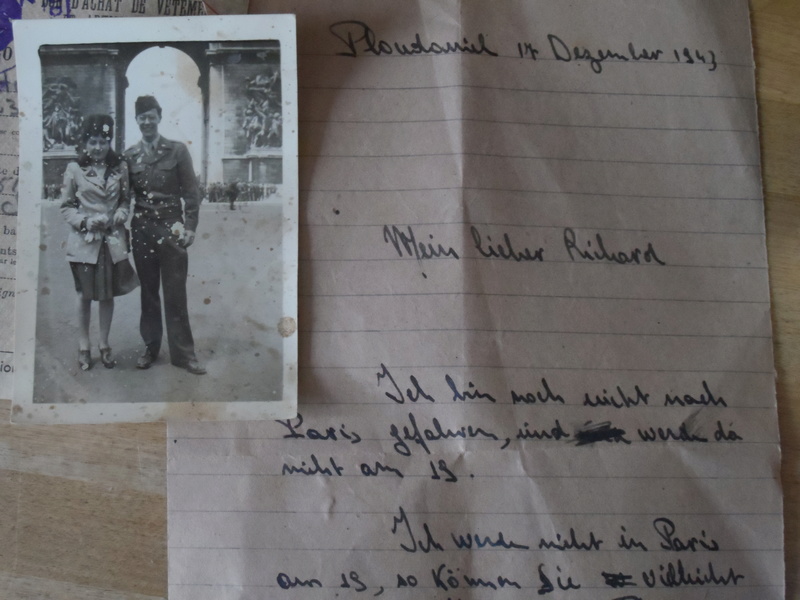 D'ACHAT DE VÊTEME
Ploudaniel 17 Dezember 1943
Mein lieber Richard
Ich bin noch nicht nach
Paris gefahren, und werde da
nicht am 19.
Ich werde nicht in Paris
am 19, so können Sie vielleicht